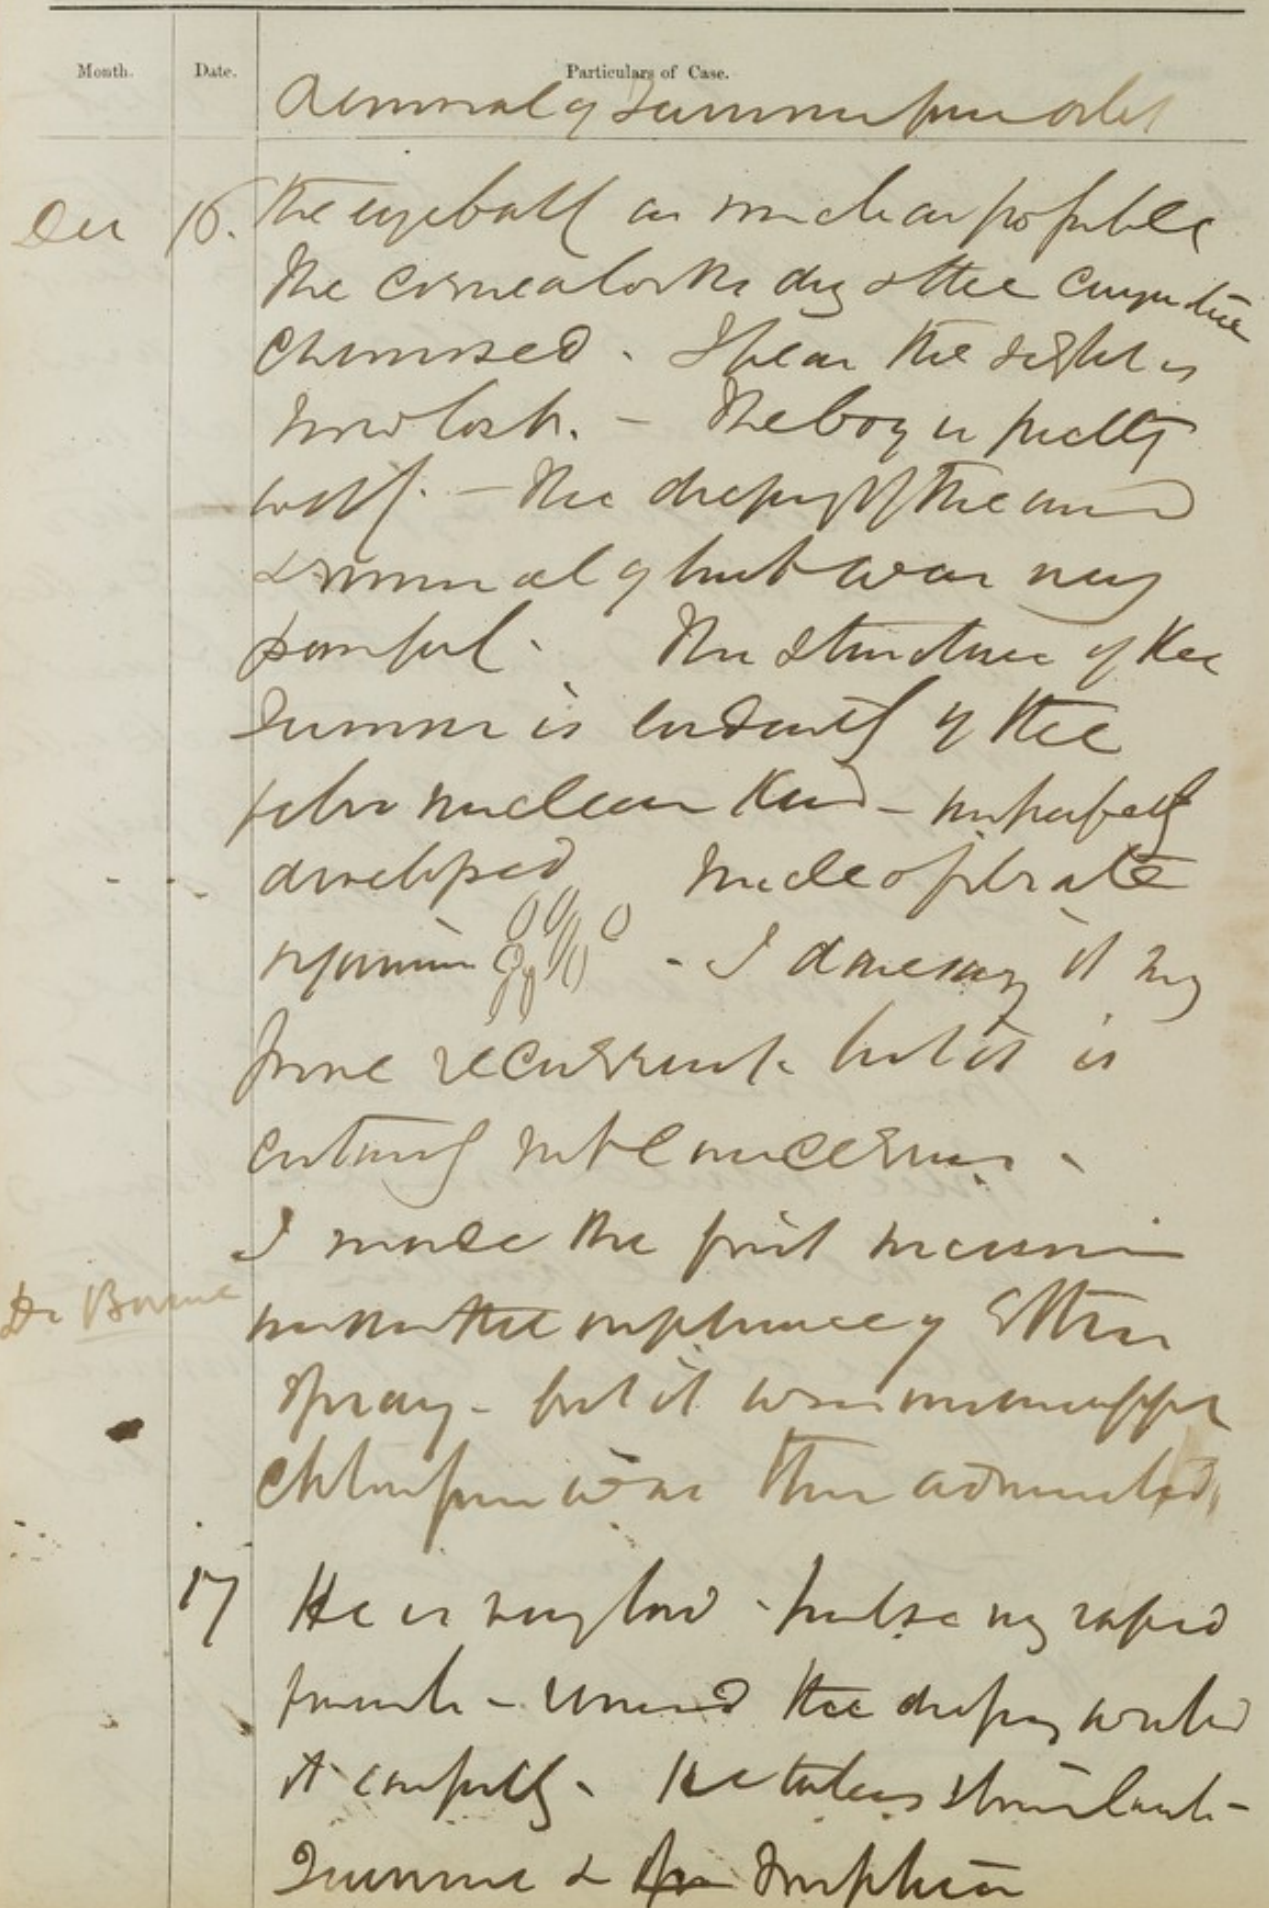 Month. Date. Particulars of Case.
Removal of Tumour from orbit
Dec 16. the eyeball as much as possible
The cornea looks dry & the conjunctiva
chemosed. I fear the sight is
now lost. - The boy is pretty
well. - The dressing of the wound
& removal of lint was very
painful. The structure of the
Tumour is evidently of the
fibro nuclear kind - imperfectly
developed nucleo fibrate
- I daresay it may
prove recurrent but it is
certainly not cancerous.
I made the first incision
Dr Bourne under the influence of Ether
Spray - but it was
chloroform was then administered,
17 He is very low - pulse very rapid
the dressing washed
it carefully. He takes stimulants -
Quinine & Morphia